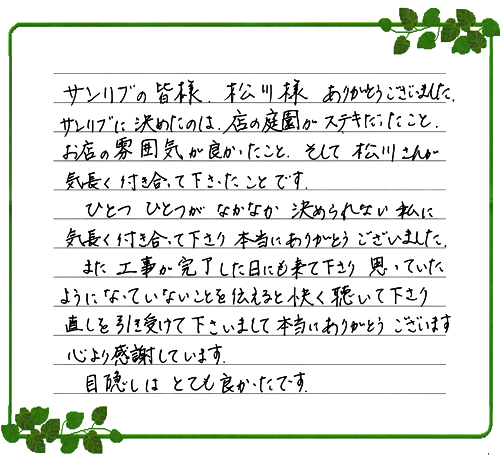 サンリブの皆様、松川様 ありがとうございました。
サンリブに決めたのは、店の庭園がステキだったこと、
お店の雰囲気が良かったこと、そして松川さんが
気長く付き合って下さったことです。
ひとつ ひとつが なかなか 決められない私に
気長く付き合って下さり 本当にありがとう ございました。
また 工事が完了した日にも来て下さり 思っていた
ようになっていないことを伝えると快く聴いて下さり
直しを引き受けて下さいまして本当にありがとう ございます
心より感謝しています。
目隠しは とても良かったです。